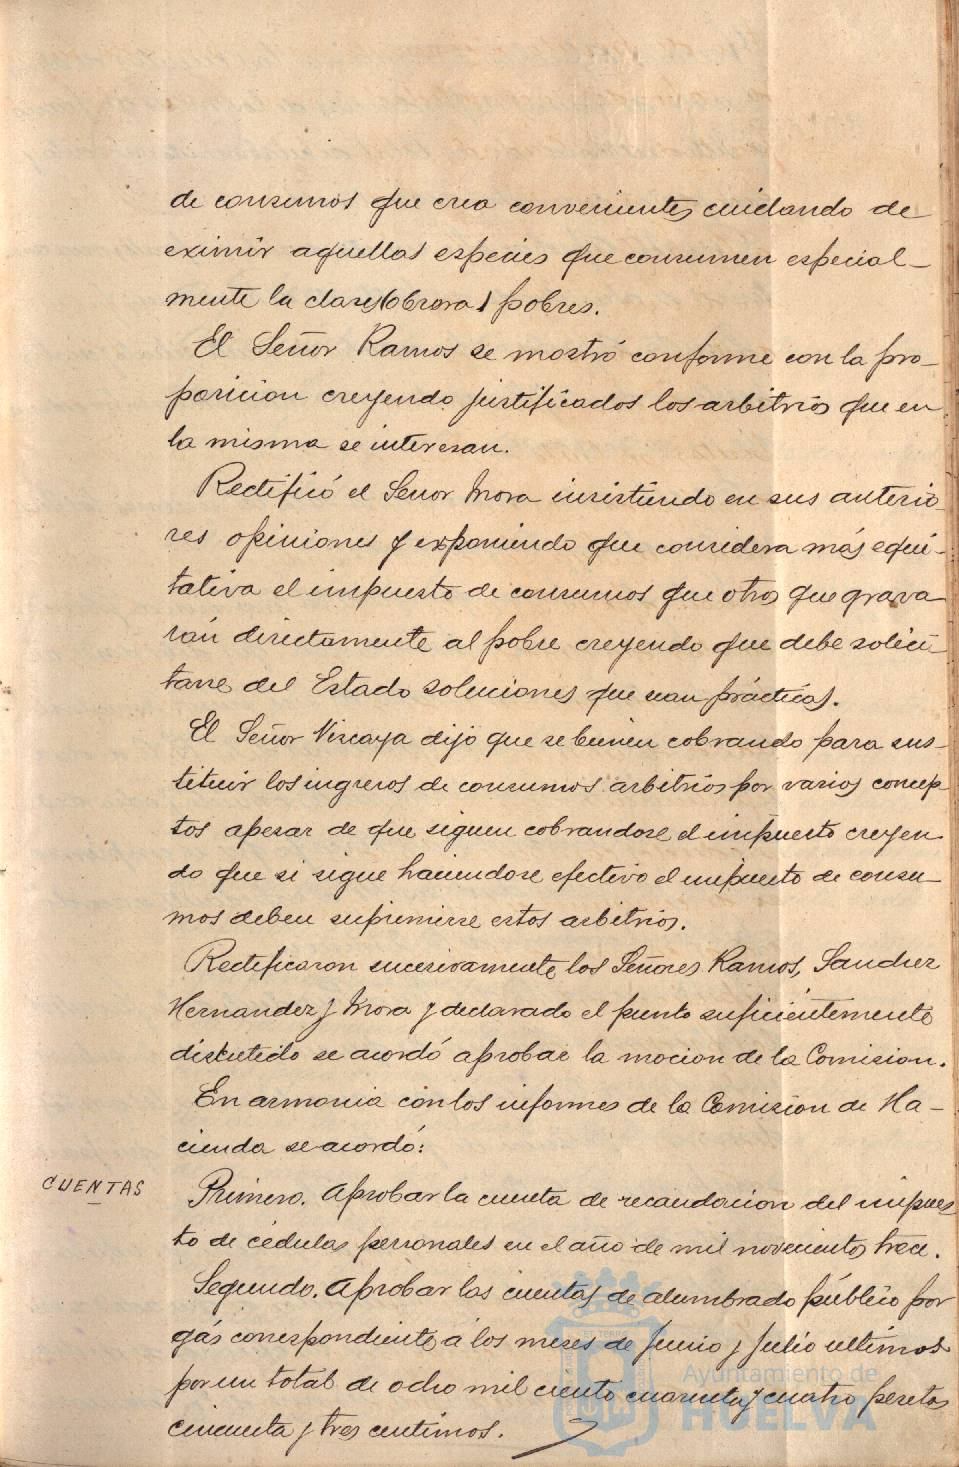 de consumos que crea convenientes cuidando de
eximir aquellas especies que consumen especial-
mente la clases (obrera) pobres.
El Señor Ramos se mostró conforme con la pro-
posicion creyendo justificados los arbitrios que en
la misma se interesan.
Rectificó el Señor Mora insistiendo en sus anterio-
res opiniones y exponiendo que considera más equi-
tativa el impuesto de consumos que otros que grava-
rán directamente al pobre creyendo que debe solici-
tarse del Estado soluciones que sean prácticas.
El Señor Vizcaya dijo que se bienen cobrando para sus-
tituir los ingresos de consumos arbitrios por varios concep-
tos apesar de que siguen cobrandose el impuesto creyen-
do que si sigue haciendose efectivo el impuesto de consu-
mos deben suprimirse estos arbitrios.
Rectificaron sucesivamente los Señores Ramos, Sanchez
Hernandez y Mora y declarado el punto suficientemente
discutido se acordó aprobar la mocion de la Comision.
En armonia con los informes de la Comision de Ha-
cienda se acordó:
CUENTAS
Primero. Aprobar la cuenta de recaudacion del impues-
to de cédulas personales en el año de mil novecientos trece.
Segundo. Aprobar las cuentas de alumbrado público por
gás correspondiente á los meses de Junio y Julio ultimos
por un total de ocho mil ciento cuarenta y cuatro pesetas
cincuenta y tres centimos.
Ayuntamiento de
HUELVA